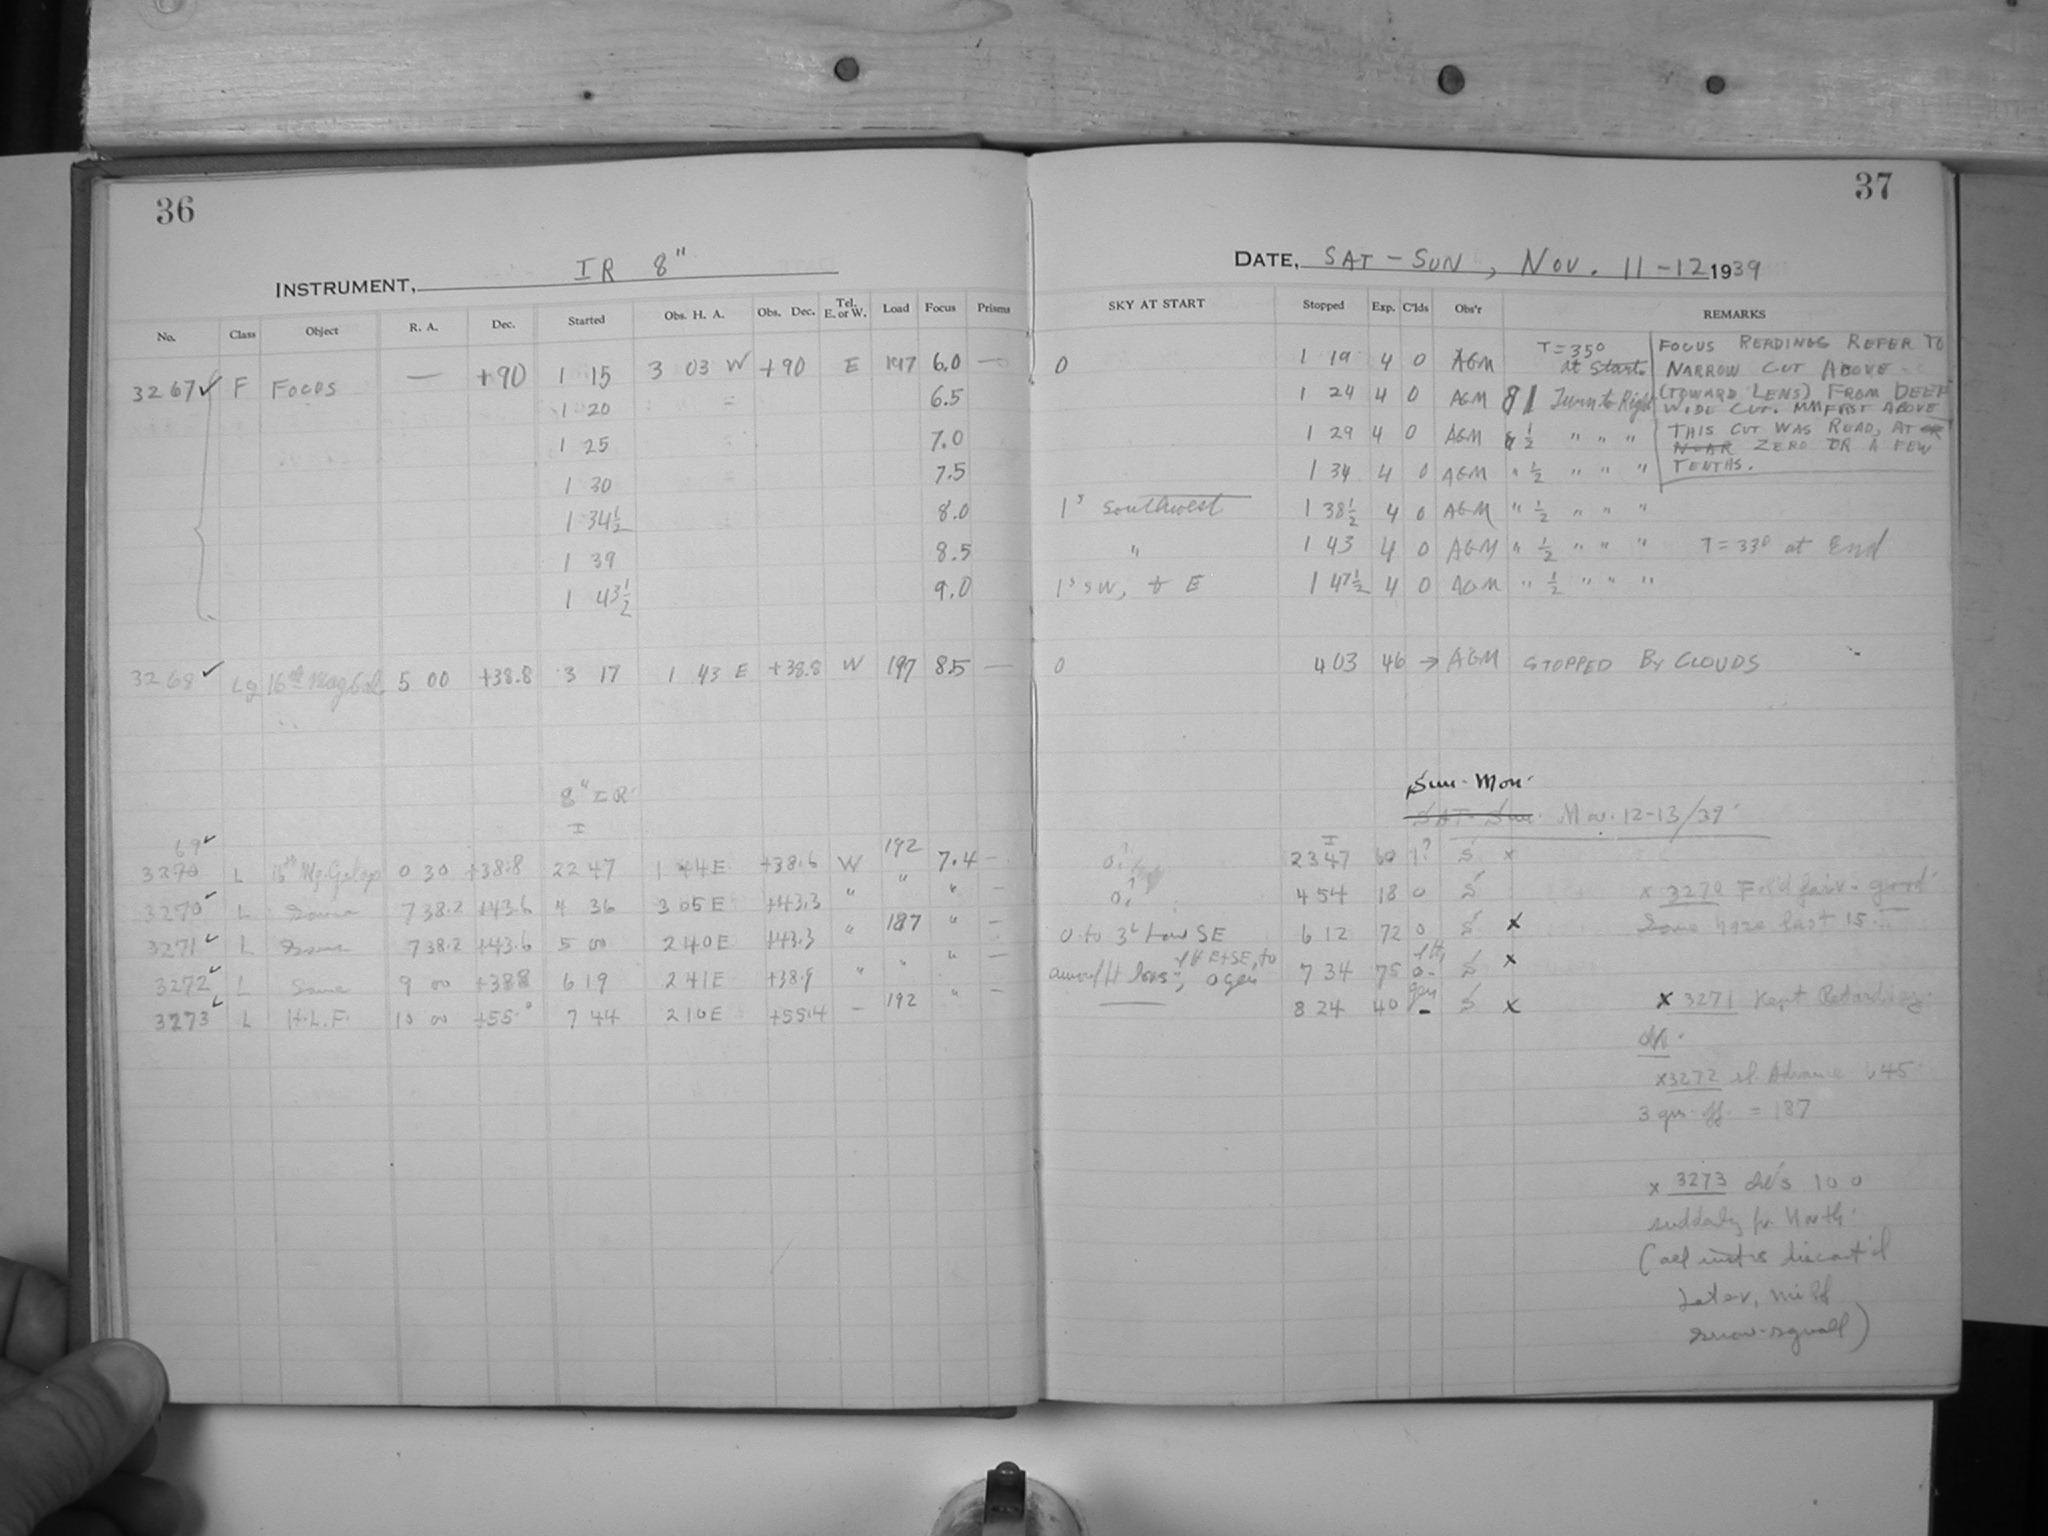 36
INSTRUMENT, IR 8"
No. Class Object R. A. Dec. Started Obs. H. A. Obs. Dec. Tel. E. or W. Load Focus Prisms
3267 ✓ F FOCUS — +90 1 15 3 03 W +90 E 197 6.0 —
1 20 6.5
1 25 7.0
1 30 7.5
1 34½ 8.0
1 39 8.5
1 43½ 9.0
3268 ✓ Lg 16th Mag Gal. 5 00 +38.8 3 17 1 43 E +38.8 W 197 8.5 —
8" IR
I
69 ✓
3270 L 0 30 +38.8 22 47 1 44 E +38.6 W 192 7.4 —
3270 ✓ L Same 7 38.2 +43.6 4 36 3 05 E +43.3 " " " —
3271 ✓ L Same 7 38.2 +43.6 5 00 2 40 E +43.3 " 187 " —
3272 ✓ L Same 9 00 +38.8 6 19 2 41 E +38.9 " " " —
3273 ✓ L H.L.F. 10 00 +55.° 7 44 2 10 E +55.4 – 192 " —
37
DATE, SAT – SUN, NOV. 11 – 12 1939
SKY AT START Stopped Exp. C'lds Obs'r REMARKS
0 1 19 4 0 AGM T = 35° at Start.
1 24 4 0 AGM 81 Turn to Right
1 29 4 0 AGM " ½ " " "
1 34 4 0 AGM " ½ " " "
1s Southwest 1 38½ 4 0 AGM " ½ " " "
" 1 43 4 0 AGM " ½ " " " T = 33° at End
1s SW, + E 1 47½ 4 0 AGM " ½ " " "
FOCUS READINGS REFER TO
NARROW CUT ABOVE
(TOWARD LENS) FROM DEEP
WIDE CUT. MM FIRST ABOVE
THIS CUT WAS READ, AT OR
NEAR ZERO OR A FEW
TENTHS.
0 4 03 46 → AGM STOPPED BY CLOUDS
Sun - Mon.
SAT - Sun. Nov. 12-13/39
I
0? 23 47 60 1? S x
0? 4 54 18 0 S
0 to 3 low SE 6 12 72 0 S x
0 gen 7 34 75 0- S x
8 24 40 gen - S x
x 3270 fair - good
haze last 15
x 3271 Kept Retarding
ok.
x 3272 sl. Advance 645
3 grs. off. = 187
x 3273 cl's 10 0
suddenly fr. North.
(all inst's discont'd
later, mild
snow-squall)